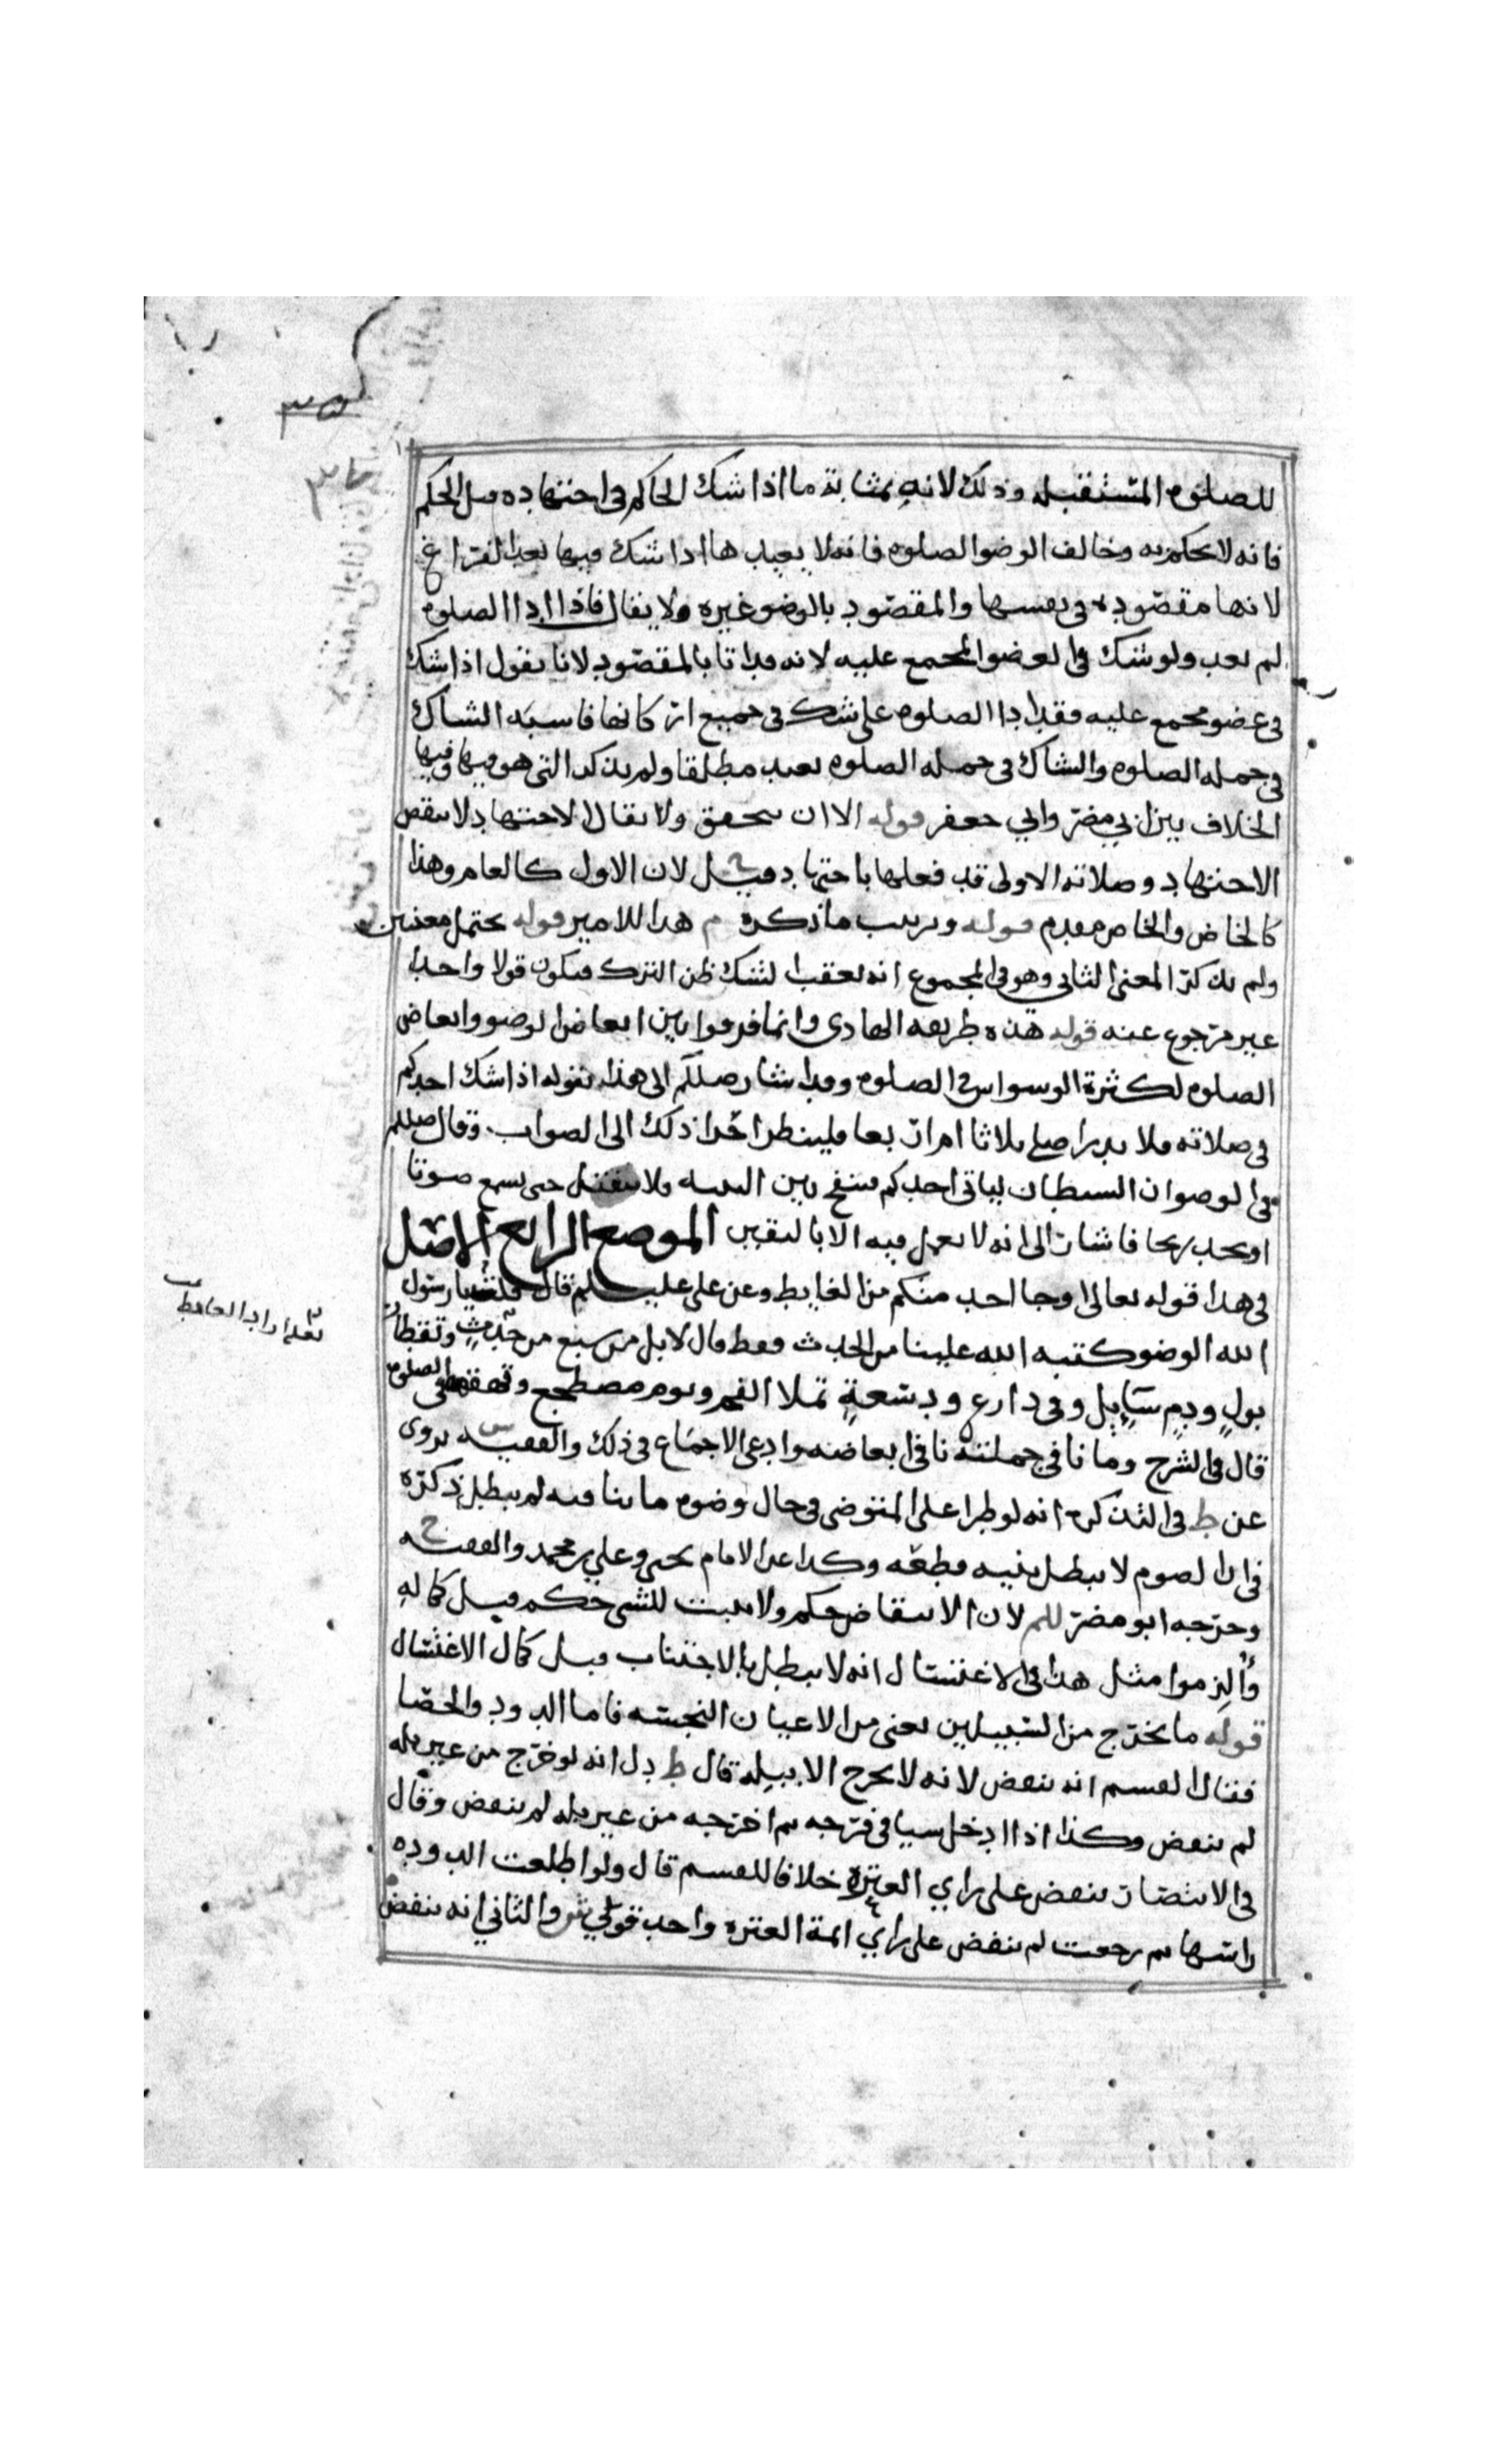 للصلوه المستقبله وذلك لانه بمثابة ما اذا شك الحاكم في اجتهاده قبل الحكم
فانه لا يحكم به وخالف الوضوالصلوه فانه لا يعيدها اذا شك فيها بعد الفراغ
لانها مقصوده في نفسها والمقصود بالوضو غيره ولا يقال فاذا ادا الصلوه
لم يعد ولو شك في العضو المجمع عليه لانه قد اتا بالمقصود لانا نقول اذا شك
في عضو مجمع عليه فقد ادا الصلوه على شك في جميع اركانها فاشبه الشاك
في جمله الصلوه والشاك في جمله الصلوه يعيد مطلقا ولم يذكر التي هو فيها وفيها
الخلاف بين ابي مضر وابي جعفر قوله الا ان يتحقق ولا يقال الاجتهاد لا ينقض
الاجتهاد وصلاته الاولى قد فعلها باجتهاد لان الاول كالعام وهذا
كالخاص والخاص مقدم قوله وترتيب ما ذكره م هذا للامير قوله يحتمل معنيين
ولم يذكر المعنى الثاني وهو في المجموع انه يعقب الشك ظن الترك فيكون قولا واحدا
غير مرجوع عنه قوله هذه طريقه الهادي وانما فرقوا بين ابعاض الوضو وابعاض
الصلوه لكثرة الوسواس في الصلوه وقد اشار صللم الى هذا بقوله اذا شك احدكم
في صلاته فلا يدرا صلى ثلاثا ام اربعا فلينظر احرا ذلك الى الصواب وقال صللم
في الوضو ان الشيطان لياتي احدكم فينفخ بين اليتيه فلا ينفتل حتى يسمع صوتا
او يجد ريحا فاشار الى انه لا يعمل فيه الا باليقين الموضع الرابع الاصل
في هذا قوله تعالى او جا احد منكم من الغايط وعن علي عليسلم قال قلت يا رسول
الله الوضو كتبه الله علينا من الحدث فقط قال لا بل من سبع من حدث وتقطار
بول ودم سايل وقي ذارع ودسعة تملا الفم ونوم مضطجع وقهقهه في الصلوه
قال في الشرح وما نافى جملته نافى ابعاضه وادعى الاجماع في ذلك والفقيه س يروى
عن ط في التذكره انه لو طرا على المتوضي في حال وضوه ما ينافيه لم يبطل ذكره
في ان الصوم لا يبطل بنيه قطعه وكذا عن الامام يحيى وعلي بن محمد والفقيه ح
وخرجه ابو مضر للم لان الانتقاض حكم ولا يثبت للشي حكم قبل كماله
وألزموا مثل هذا في الاغتسال انه لا يبطل بالاجتناب قبل كمال الاغتسال
قوله ما يخرج من السبيلين يعني من الاعيان النجسه فاما الدود والحصا
فقال القسم انه ينقض لانه لا يخرج الا ببله قال ط دل انه لو خرج من غير بله
لم ينقض وكذا اذا ادخل شيا في فرجه ثم اخرجه من غير بله لم ينقض وقال
في الانتصار ينقض على راي العتره خلافا للقسم قال ولو اطلعت الدوده
راسها ثم رجعت لم ينقض على راي ايمة العتره واحد قولي ش والثاني انه ينقض